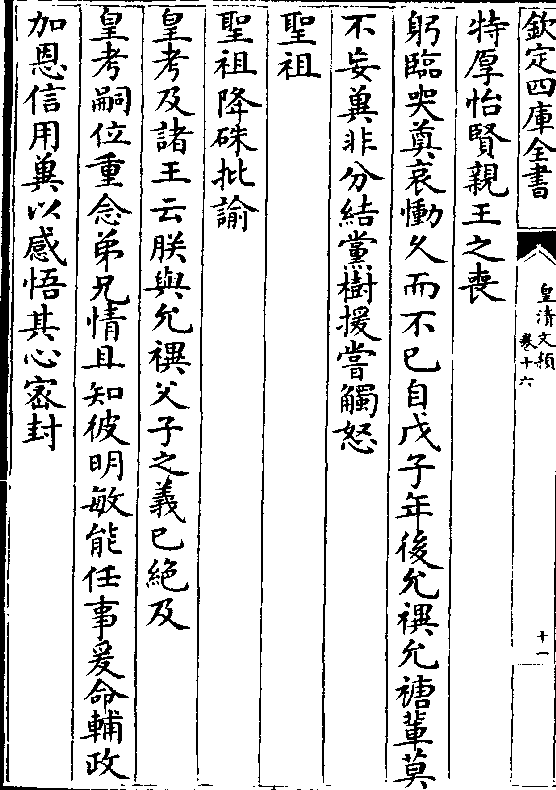 欽定四庫全書
皇清文穎
卷十六
十一
特厚怡賢親王之喪
躬臨哭奠哀慟久而不已自戊子年後允禩允禟輩莫
不妄冀非分結黨樹援嘗觸怒
聖祖
聖祖降硃批諭
皇考及諸王云朕與允禩父子之義已絶及
皇考嗣位重念弟兄情且知彼明敏能任事爰命輔政
加恩信用冀以感悟其心宻封